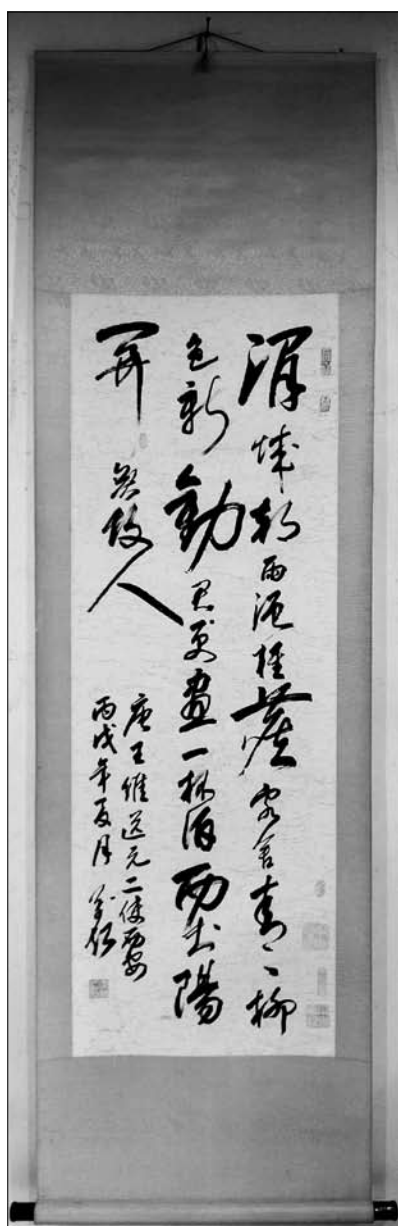 渭城朝雨浥輕塵客舍青々柳
色新勸君更盡一杯酒西出陽
關無故人
唐王維送元二使西安
丙戌年夏月